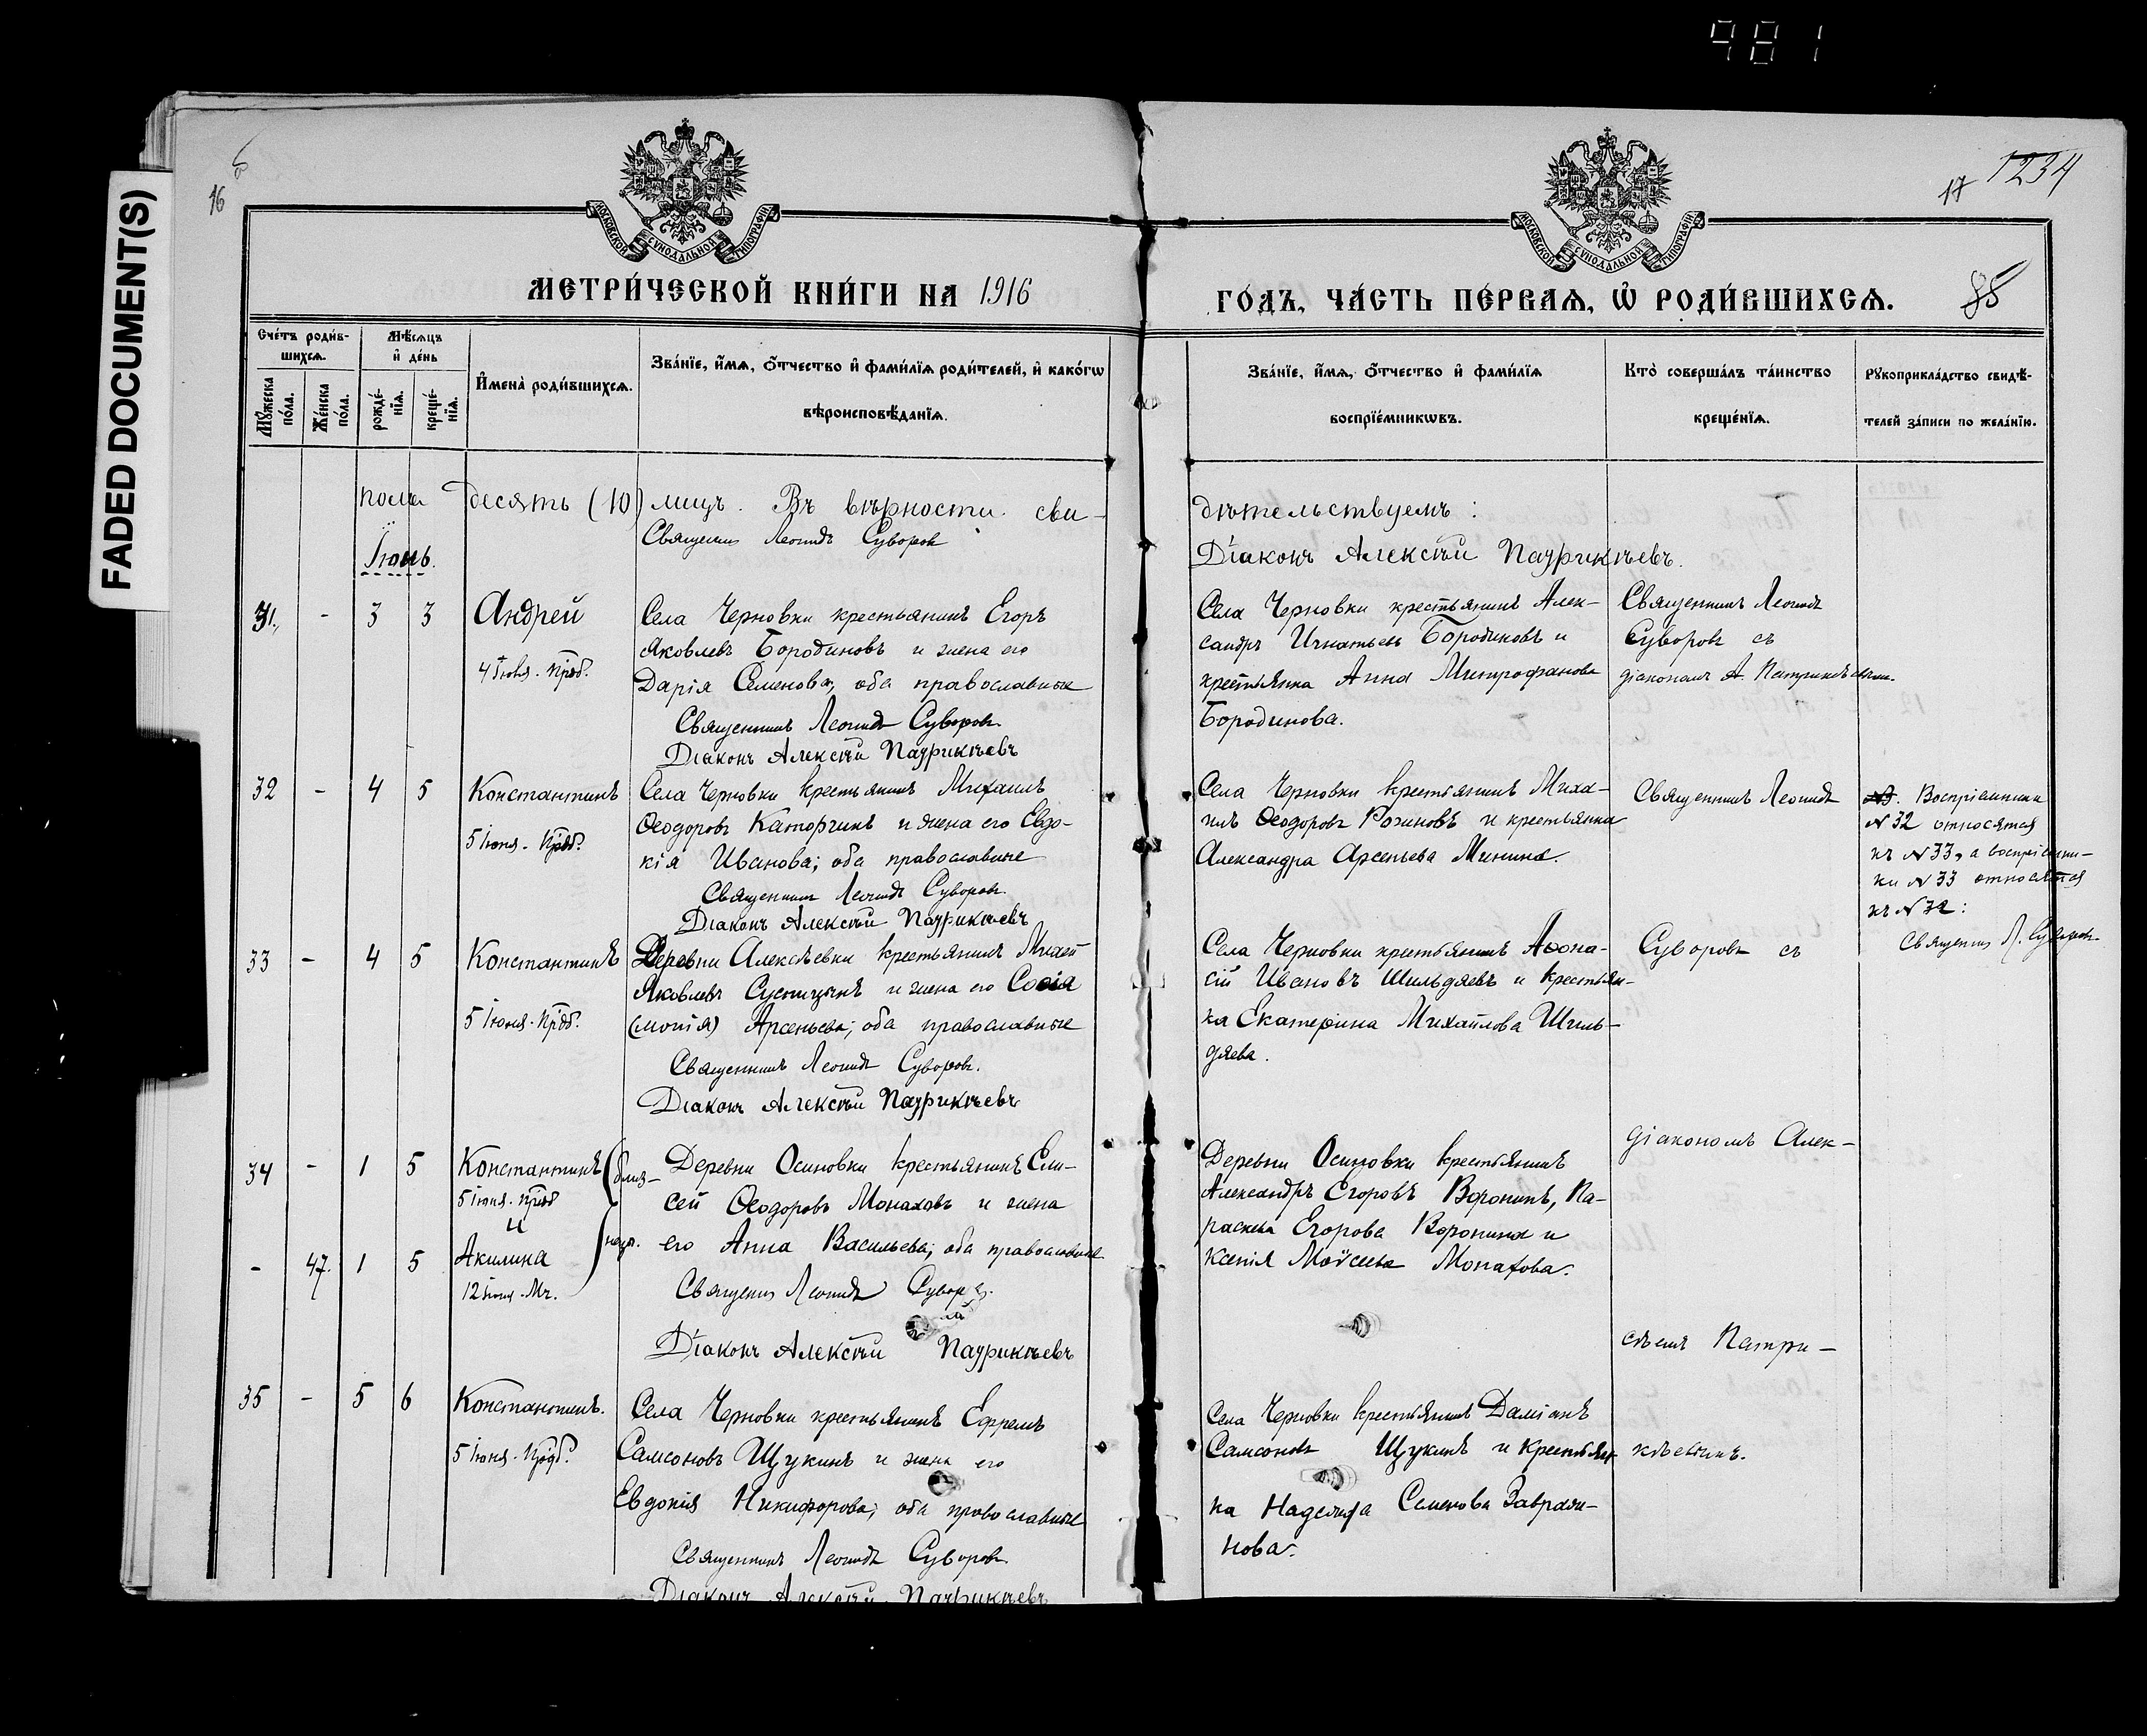 981
FADED DOCUMENT(S)
16
17
1234
85
МОСКОВСКОЙ СѴНОДАЛЬНОЙ ТИПОГРАФІИ
МОСКОВСКОЙ СѴНОДАЛЬНОЙ ТИПОГРАФІИ
МЕТРИ́ЧЕСКОЙ КНИ́ГИ НА 1916
ГО́ДЪ, ЧА́СТЬ ПЕ́РВАѦ, Ѽ РОДИ́ВШИХСѦ.
Сче́тъ роди́в-
шихсѧ.
Мꙋжеска
по́ла.
Же́нска
по́ла.
Мѣ́сѧцъ
и҆ де́нь
рожде́-
нїѧ.
креще́-
нїѧ.
И҆мена̀ роди́вшихсѧ.
Зва́нїе, и҆́мѧ, ѻ҆́тчество и҆ фами́лїѧ роди́телей, и҆ како́гѡ
вѣроисповѣ́данїѧ.
Зва́нїе, и҆́мѧ, ѻ҆́тчество и҆ фами́лїѧ
воспрїе́мникѡвъ.
Кто̀ соверша́лъ та́инство
креще́нїѧ.
Рꙋкоприкла́дство свидѣ́-
телей за́писи по жела́нїю.
пола десять (10) лицъ. Въ вѣрности сви-
дѣтельствуемъ:
Священникъ Леонидъ Суворовъ
Діаконъ Алексѣй Патрикѣевъ.
Іюнь.
31. - 3 3 Андрей
4 Іюня. Прпб.
Села Черновки крестьянинъ Егоръ
Яковлевъ Бородиновъ и жена его
Дарія Семенова, оба православные
Священникъ Леонидъ Суворовъ
Діаконъ Алексѣй Патрикѣевъ
Села Черновки крестьянинъ Алек-
сандръ Игнатьевъ Бородиновъ и
крестьянка Анна Митрофанова
Бородинова.
Священникъ Леонидъ
Суворовъ съ
діакономъ А. Патрикѣевымъ.
32 - 4 5 Константинъ
5 Іюня. Прпб.
Села Черновки крестьянинъ Михаилъ
Ѳеодоровъ Каторгинъ и жена его Евдо-
кія Иванова; оба православные
Священникъ Леонидъ Суворовъ.
Діаконъ Алексѣй Патрикѣевъ
Села Черновки крестьянинъ Миха-
илъ Ѳеодоровъ Розиновъ и крестьянка
Александра Арсеньева Минина.
Священникъ Леонидъ
Воспріемники
№ 32 относятся
къ № 33, а воспріемни-
ки № 33 относятся
къ № 32:
Священникъ Л. Суворовъ
33 - 4 5 Константинъ
5 Іюня. Прпб.
Деревни Алексѣевки крестьянинъ Михей
Яковлевъ Сустицынъ и жена его Софія
Арсеньева; оба православные
Священникъ Леонидъ Суворовъ.
Діаконъ Алексѣй Патрикѣевъ
Села Черновки крестьянинъ Аѳана-
сій Ивановъ Шильдяевъ и крестьян-
ка Екатерина Михайлова Шиль-
дяева.
Суворовъ съ
34 - 1 5 Константинъ (близ-
5 Іюня. Прпб
и
- 47. 1 5 Акилина нецы.
12 Іюня. Мч.
Деревни Осиновки крестьянинъ Ели-
сей Ѳеодоровъ Монаховъ и жена
его Анна Васильева; оба православные
Священникъ Леонидъ Суворовъ.
Діаконъ Алексѣй Патрикѣевъ
Деревни Осиновки крестьянинъ
Александръ Егоровъ Воронинъ, Па-
раскева Егорова Воронина и
Ксенія Моѵсеева Монахова.
діакономъ Алек-
сѣемъ Патри-
35 - 5 6 Константинъ.
5 Іюня. Прпб.
Села Черновки крестьянинъ Ефремъ
Самсоновъ Щукинъ и жена его
Евдокія Никифорова; оба православные
Священникъ Леонидъ Суворовъ
Діаконъ Алексѣй Патрикѣевъ
Села Черновки крестьянинъ Даміанъ
Самсоновъ Щукинъ и крестьян-
ка Надежда Семенова Завражи-
нова.
кѣевымъ.